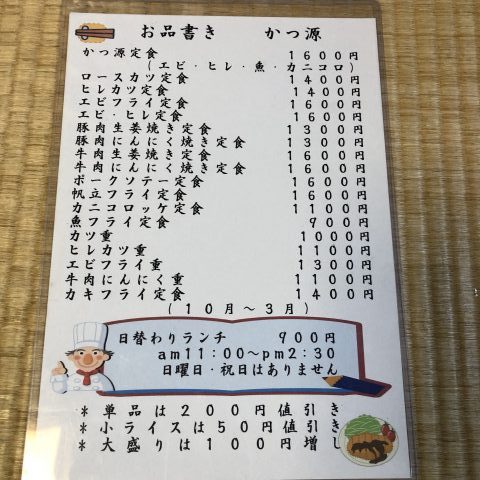 お品書き かつ源
かつ源定食 1600円
(エビ・ヒレ・魚・カニコロ)
ロースカツ定食 1400円
ヒレカツ定食 1400円
エビフライ定食 1600円
エビ・ヒレ定食 1600円
豚肉生姜焼き定食 1300円
豚肉にんにく焼き定食 1300円
牛肉生姜焼き定食 1600円
牛肉にんにく焼き定食 1600円
ポークソテー定食 1600円
帆立フライ定食 1600円
カニコロッケ定食 1100円
魚フライ定食 900円
カツ重 1000円
ヒレカツ重 1100円
エビフライ重 1300円
牛肉にんにく重 1100円
カキフライ定食 1400円
(10月～3月)
日替わりランチ 900円
am11:00～pm2:30
日曜日・祝日はありません
＊単品は200円値引き
＊小ライスは50円値引き
＊大盛りは100円増し